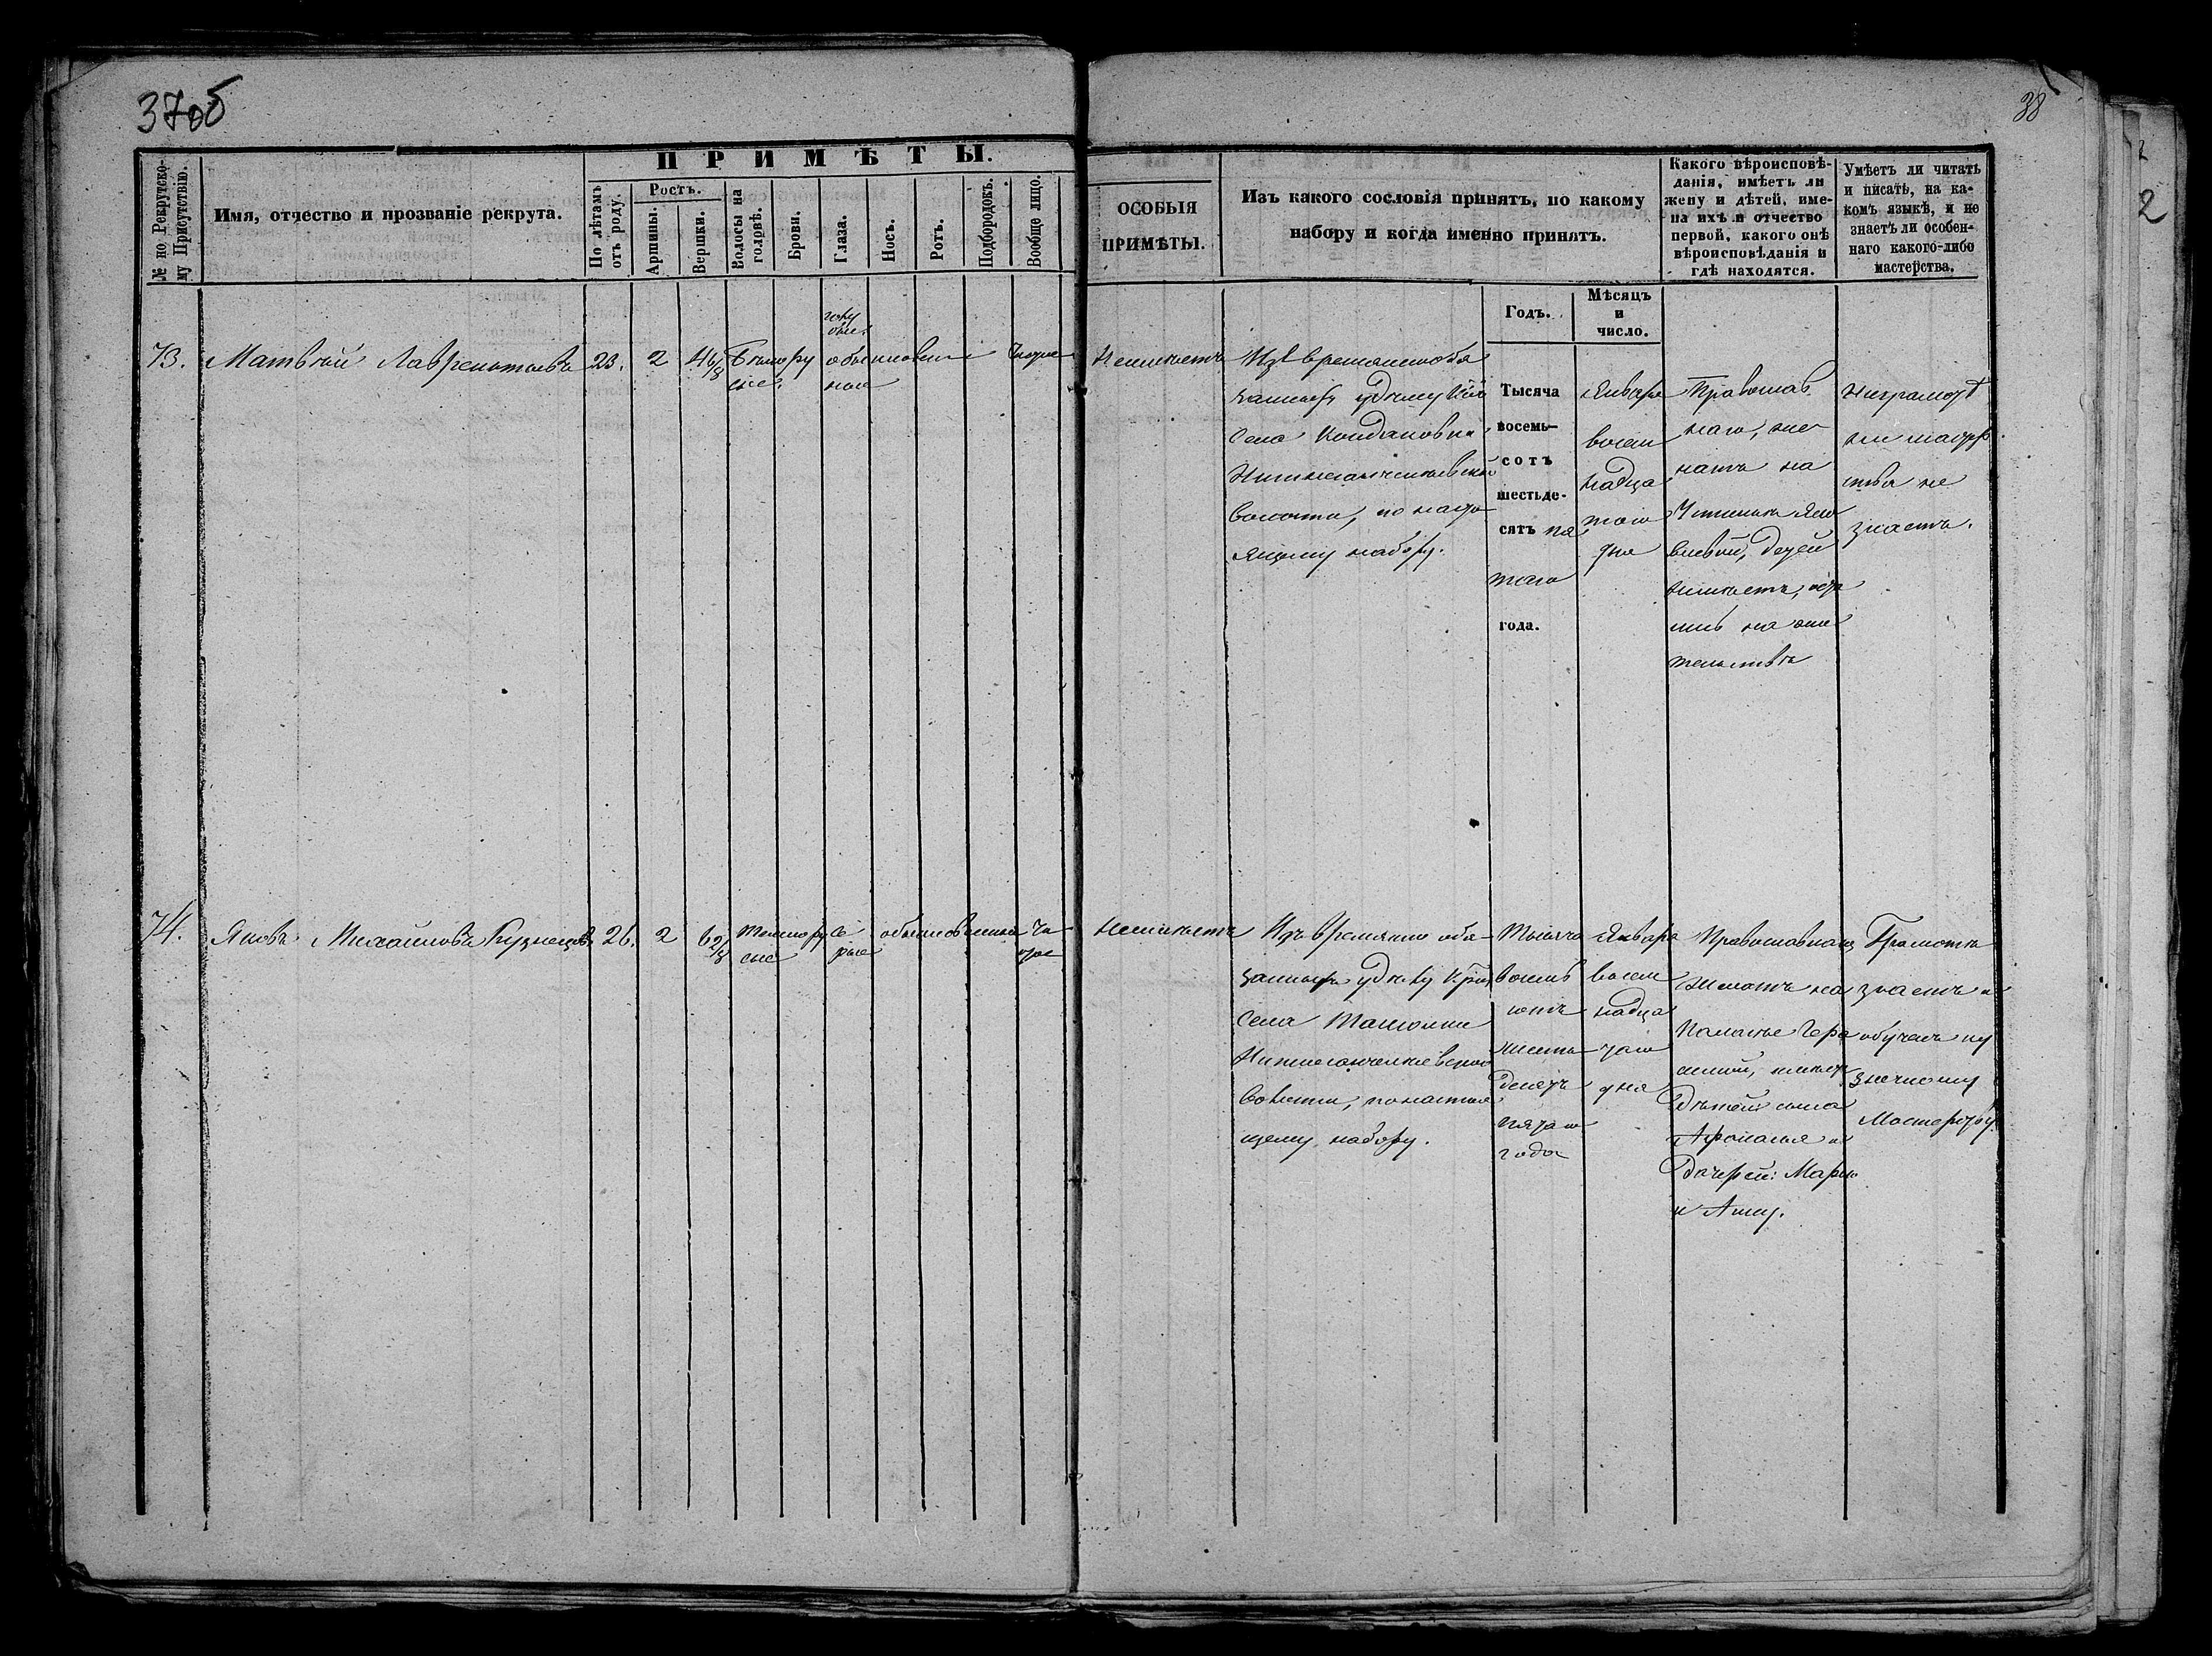 37об
38
2
№ по Рекрутско-
му Присутствію.
Имя, отчество и прозваніе рекрута.
ПРИМѢТЫ.
По лѣтамъ
отъ роду.
Ростъ.
Аршины.
Вершки.
Волосы на
головѣ.
Брови.
Глаза.
Носъ.
Ротъ.
Подбородокъ.
Вообще лицо.
ОСОБЫЯ
ПРИМѢТЫ.
Изъ какого сословія принятъ, по какому
набору и когда именно принятъ.
Какого вѣроисповѣ-
данія, имѣетъ ли
жену и дѣтей, име-
на ихъ и отчество
первой, какого онѣ
вѣроисповѣданія и
гдѣ находятся.
Умѣетъ ли читать
и писать, на ка-
комъ языкѣ, и не
знаетъ ли особен-
наго какого-либо
мастерства.
Годъ.
Мѣсяцъ
и
число.
73.
Матвѣй Лаврентьевъ
23.
2
4 6/8
Темнору
сые.
голу
обыкновен
ное
Чистое
Неимѣетъ
Изъ временнообя
занныхъ
Села Кондаковки
волости, по насто
ящему набору.
Тысяча
восемь-
сотъ
шестьде-
сятъ пя
таго
года.
Января
восем
надца
таго
дня
Православ
наго, же
натъ на
Устинья Яко
влевой, детей
неимѣетъ,
на жи
тельствѣ
Неграмотъ
ни мастер
ства не
знаетъ.
74.
Яковъ Михайловъ Кузнецовъ
26.
2
6 2/8
Темнору
сые
Се
рые
обыкновенное
Чи
стое
Неимѣетъ
Изъ временно обя
занныхъ
Села
волости, понастоя
щему набору.
Тысяча
восемь
сотъ
шесть
десятъ
пятаго
года
Января
восем
надца
таго
дня
Православнаго
Женатъ на
Паланье Гера
симой, имѣетъ
Дѣтей: сына
Афонасья и
Дочерей: Марью
и Анну.
Грамоту
знаетъ и
обученъ ку
знечному
Мастерству